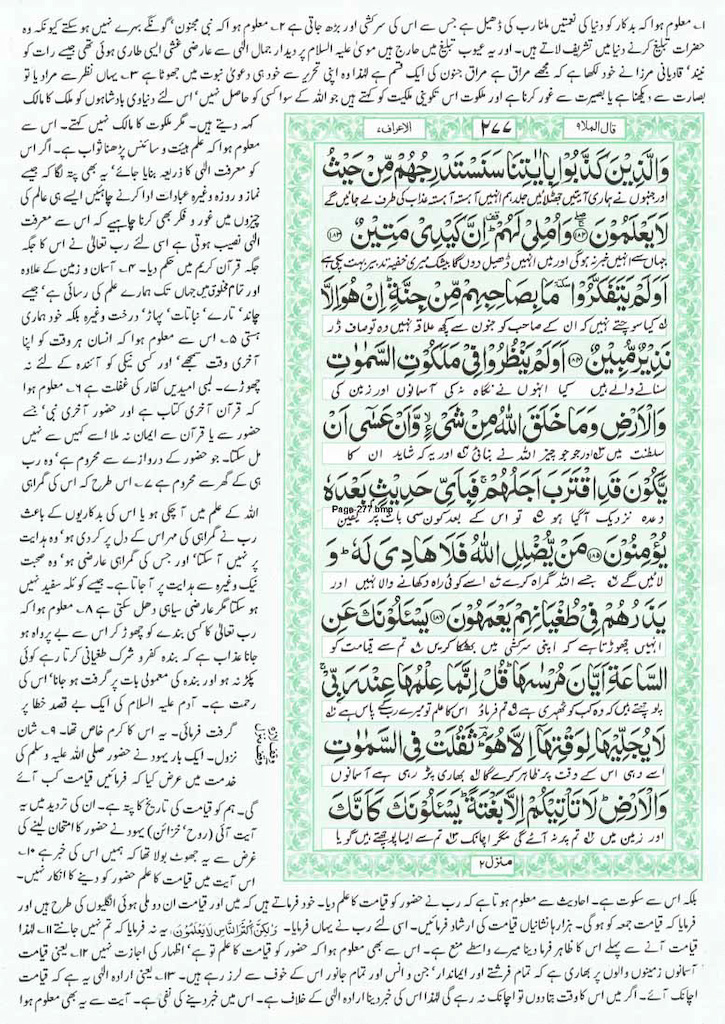 ۱۔ معلوم ہوا کہ بدکار کو دنیا کی نعمتیں ملنا رب کی ڈھیل ہے جس سے اس کی سرکشی اور بڑھ جاتی ہے ۲۔ معلوم ہوا کہ نبی مجنون‘ گونگے بہرے نہیں ہو سکتے کیونکہ وہ
حضرات تبلیغ کرنے دنیا میں تشریف لاتے ہیں۔ اور یہ عیوب تبلیغ میں حارج ہیں موسیٰ علیہ السلام پر دیدار جمال الٰہی سے عارضی غشی ایسی طاری ہوئی تھی جیسے رات کو
نیند‘ قادیانی مرزا نے خود لکھا ہے کہ مجھے مراق ہے مراق جنون کی ایک قسم ہے لہٰذا وہ اپنی تحریر سے خود ہی دعویٰ نبوت میں جھوٹا ہے ۳۔ یہاں نظر سے مراد یا تو
بصارت سے دیکھنا ہے یا بصیرت سے غور کرنا ہے اور ملکوت اس تکوینی ملکیت کو کہتے ہیں جو اللہ کے سوا کسی کو حاصل نہیں‘ اس لئے دنیاوی بادشاہوں کو ملک کا مالک
کہہ دیتے ہیں۔ مگر ملکوت کا مالک نہیں کہتے۔ اس سے
معلوم ہوا کہ علم ہیئت و سائنس پڑھنا ثواب ہے۔ اگر اس
کو معرفت الٰہی کا ذریعہ بنایا جائے‘ یہ بھی پتہ لگا کہ جیسے
نماز و روزہ وغیرہ عبادات ادا کرنے چاہئیں ایسے ہی عالم کی
چیزوں میں غور و فکر بھی کرنا چاہیے کہ اس سے معرفت
الٰہی نصیب ہوتی ہے اسی لئے رب تعالیٰ نے اس کا جگہ
جگہ قرآن کریم میں حکم دیا۔ ۴۔ آسمان و زمین کے علاوہ
اور تمام مخلوق میں جہاں تک ہمارے علم کی رسائی ہے‘ جیسے
چاند‘ تارے‘ نباتات‘ پہاڑ‘ درخت وغیرہ بلکہ خود ہماری
ہستی ۵۔ اس سے معلوم ہوا کہ انسان ہر وقت کو اپنا
آخری وقت سمجھے‘ اور کسی نیکی کو آئندہ کے لئے نہ
چھوڑے۔ لمبی امیدیں کفار کی غفلت ہے ۶۔ معلوم ہوا
کہ قرآن آخری کتاب ہے اور حضور آخری نبی‘ جسے
حضور سے یا قرآن سے ایمان نہ ملا اسے کہیں سے نہیں
مل سکتا۔ جو حضور کے دروازے سے محروم ہے‘ وہ رب
ہی کے گھر سے محروم ہے ۷۔ اس طرح کہ اس کی گمراہی
اللہ کے علم میں آ چکی ہو یا اس کی بدکاریوں کے باعث
رب نے گمراہی کی مہر اس کے دل پر کر دی ہو‘ وہ ہدایت
پر نہیں آ سکتا‘ اور جس کی گمراہی عارضی ہو‘ وہ صحبت
نیک وغیرہ سے ہدایت پر آ جاتا ہے۔ جیسے کوئلہ سفید نہیں
ہو سکتا مگر عارضی سیاہی دھل سکتی ہے ۸۔ معلوم ہوا کہ
رب تعالیٰ کا کسی بندے کو چھوڑ کر اس سے بے پرواہ ہو
جانا عذاب ہے کہ بندہ کفر و شرک طغیانی کرتا رہے کوئی
پکڑ نہ ہو اور بندہ کی معمولی بات پر گرفت ہو جانا‘ اس کی
رحمت ہے۔ آدم علیہ السلام کی ایک بے قصد خطا پر
گرفت فرمائی۔ یہ اس کا کرم خاص تھا۔ ۹۔ شان
نزول۔ ایک بار یہود نے حضور صلی اللہ علیہ وسلم کی
خدمت میں عرض کیا کہ فرمائیں قیامت کب آئے
گی۔ ہم کو قیامت کی تاریخ کا پتہ ہے۔ ان کی تردید میں یہ
آیت آئی (روح‘ خزائن) یہود نے حضور کا امتحان لینے کی
غرض سے یہ جھوٹ بولا تھا کہ ہمیں اس کی خبر ہے ۱۰۔
اس آیت میں قیامت کا علم حضور کو دینے کا انکار نہیں۔
قال الملا۹ ۲۷۷ الاعراف۷
وَالَّذِيْنَ كَذَّبُوْا بِاٰيٰتِنَا سَنَسْتَدْرِجُهُمْ مِّنْ حَيْثُ
اور جنہوں نے ہماری آیتیں جھٹلائیں جلد ہم انہیں آہستہ آہستہ عذاب کی طرف لے جائیں گے
لَا يَعْلَمُوْنَ ۱۸۲ وَاُمْلِيْ لَهُمْ اِنَّ كَيْدِيْ مَتِيْنٌ ۱۸۳
جہاں سے انہیں خبر نہ ہوگی اور میں انہیں ڈھیل دوں گا بیشک میری خفیہ تدبیر بہت پکی ہے
اَوَلَمْ يَتَفَكَّرُوْا مَا بِصَاحِبِهِمْ مِّنْ جِنَّةٍ اِنْ هُوَ اِلَّا
کیا سوچتے نہیں کہ ان کے صاحب کو جنون سے کچھ علاقہ نہیں وہ تو صاف ڈر
نَذِيْرٌ مُّبِيْنٌ ۱۸۴ اَوَلَمْ يَنْظُرُوْا فِيْ مَلَكُوْتِ السَّمٰوٰتِ
سنانے والے ہیں کیا انہوں نے نگاہ نہ کی آسمانوں اور زمین کی
وَالْاَرْضِ وَمَا خَلَقَ اللّٰهُ مِنْ شَيْءٍ وَّاَنْ عَسٰى اَنْ
سلطنت میں اور جو جو چیز اللہ نے بنائی اور یہ کہ شاید ان کا
يَّكُوْنَ قَدِ اقْتَرَبَ اَجَلُهُمْ فَبِاَيِّ حَدِيْثٍۭ بَعْدَهٗ
Page-277.bmp
وعدہ نزدیک آ گیا ہو تو اس کے بعد کون سی بات پر یقین
يُؤْمِنُوْنَ ۱۸۵ مَنْ يُّضْلِلِ اللّٰهُ فَلَا هَادِيَ لَهٗ وَ
لائیں گے جسے اللہ گمراہ کرے اسے کوئی راہ دکھانے والا نہیں اور
يَذَرُهُمْ فِيْ طُغْيَانِهِمْ يَعْمَهُوْنَ ۱۸۶ يَسْـَٔلُوْنَكَ عَنِ
انہیں چھوڑتا ہے کہ اپنی سرکشی میں بھٹکا کریں تم سے قیامت کو
السَّاعَةِ اَيَّانَ مُرْسٰىهَا قُلْ اِنَّمَا عِلْمُهَا عِنْدَ رَبِّيْ
پوچھتے ہیں کہ وہ کب کو ٹھہری ہے تم فرماؤ اس کا علم تو میرے رب کے پاس ہے
لَا يُجَلِّيْهَا لِوَقْتِهَا اِلَّا هُوَ ثَقُلَتْ فِي السَّمٰوٰتِ
اسے وہی اس کے وقت پر ظاہر کرے گا بھاری پڑ رہی ہے آسمانوں
وَالْاَرْضِ لَا تَاْتِيْكُمْ اِلَّا بَغْتَةً يَسْـَٔلُوْنَكَ كَاَنَّكَ
اور زمین میں تم پر نہ آئے گی مگر اچانک تم سے ایسا پوچھتے ہیں گویا
منزل۲
بلکہ اس سے سکوت ہے۔ احادیث سے معلوم ہوتا ہے کہ رب نے حضور کو قیامت کا علم دیا۔ خود فرماتے ہیں کہ میں اور قیامت ان دو ملی ہوئی انگلیوں کی طرح ہیں اور
فرمایا کہ قیامت جمعہ کو ہو گی۔ ہزارہا نشانیاں قیامت کی ارشاد فرمائیں۔ اسی لئے رب نے یہاں فرمایا۔ وَلٰكِنَّ اَكْثَرَ النَّاسِ لَا يَعْلَمُوْنَ۔ یہ نہ فرمایا کہ تم نہیں جانتے ۱۱۔ لہٰذا
قیامت آنے سے پہلے اس کا ظاہر فرما دینا میرے واسطے منع ہے۔ اس سے بھی معلوم ہوا کہ حضور کو قیامت کا علم تو ہے‘ اظہار کی اجازت نہیں ۱۲۔ یعنی قیامت
آسمانوں زمینوں والوں پر بھاری ہے کہ تمام فرشتے اور ایماندار‘ جن و انس اور تمام جانور اس کے خوف سے لرز رہے ہیں۔ ۱۳۔ یعنی ارادہ الٰہی یہ ہے کہ قیامت
اچانک آئے۔ اگر میں اس کا وقت بتا دوں تو اچانک نہ رہے گی لہٰذا اس کی خبر دینا ارادہ الٰہی کے خلاف ہے۔ اس میں خبر دینے کی نفی ہے۔ آیت سے یہ بھی معلوم ہوا